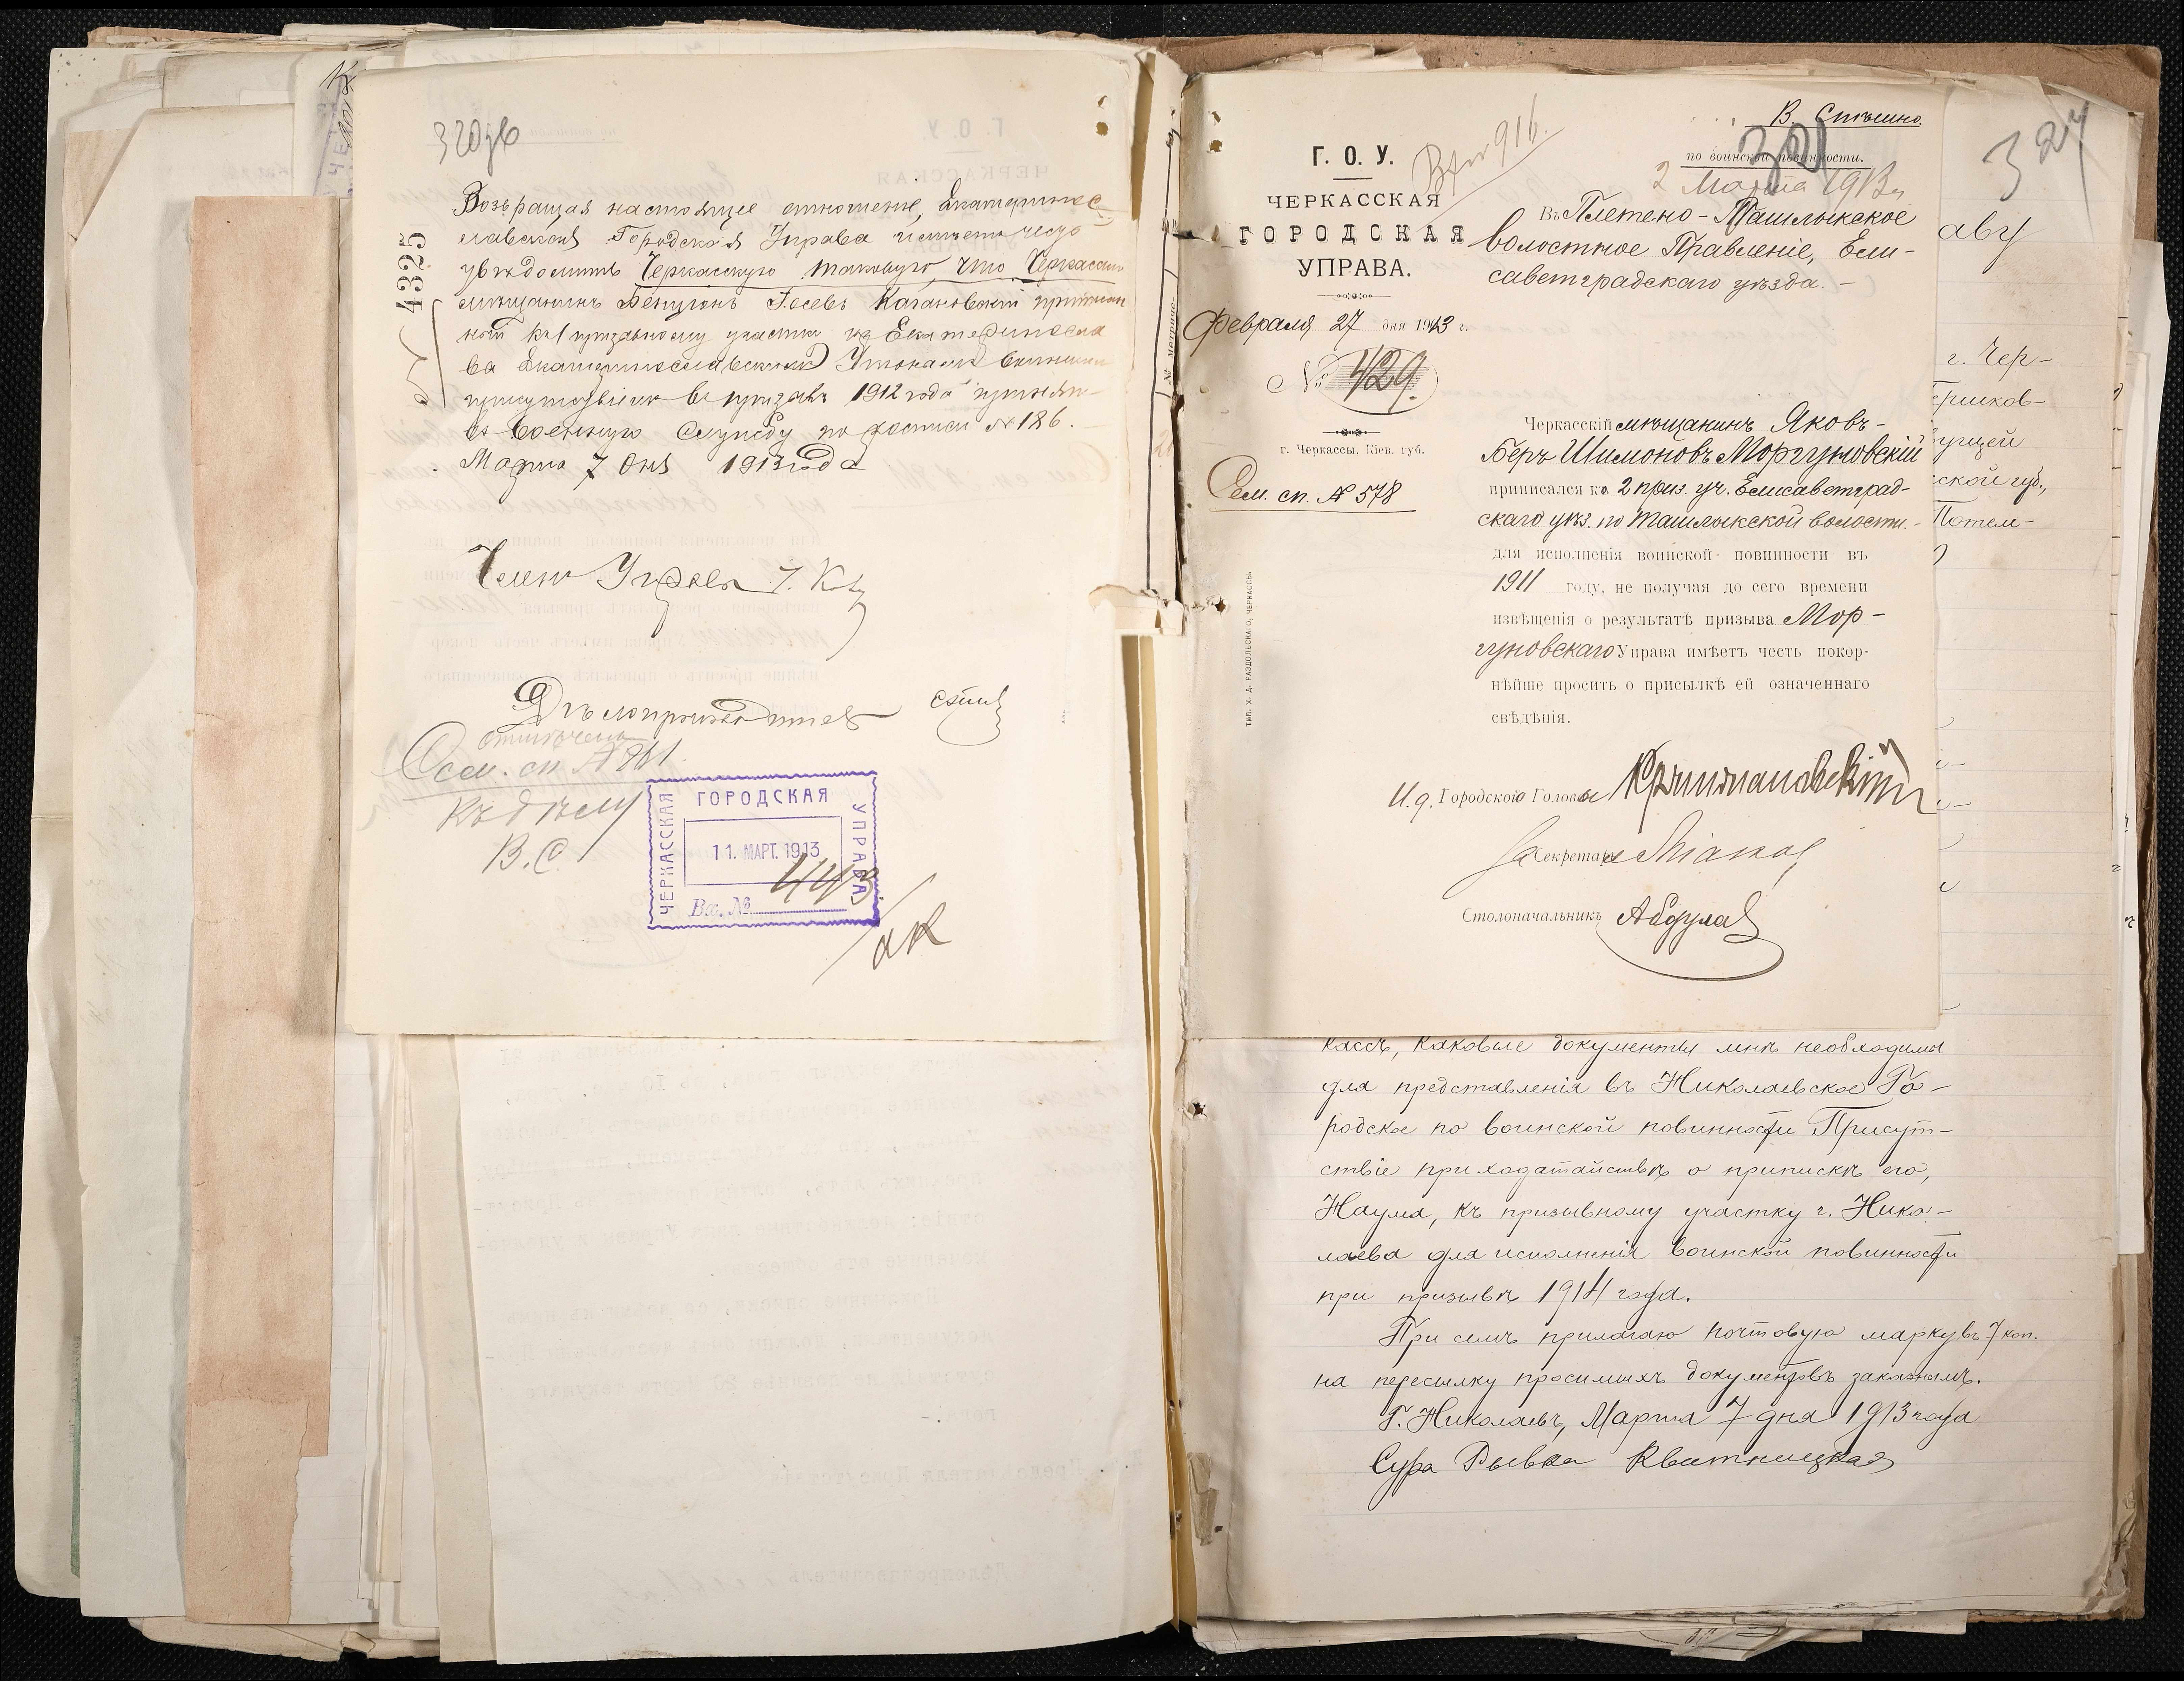 320 об
4325
Возвращая настоящее отношение, Екатерино-
славская Городская Управа имеетъ честь
увѣдомить Черкасскую таковую, что Черкасскій
мѣщанинъ Бенціонъ Іосевъ Кагановскій приписан
ный къ 1 призывному участку гор Екатеринослa
ва Екатеринославскимъ Уѣзднымъ воинскимъ
присутствіемъ въ призывъ 1912 года принятъ
въ военную службу по росписи № 186.
Марта 7 дня 1913 года
Членъ Управы
Дѣлопроизводитель
отмѣчено
Сем. сп №
Къ дѣлу
В. С.
ЧЕРКАССКАЯ ГОРОДСКАЯ УПРАВА
11. МАРТ. 1913
Вх. № 443
В. Спѣшно.
по воинской повинности.
321
2 Марта 1913 г
916.
324
Г. О. У.
ЧЕРКАССКАЯ
ГОРОДСКАЯ
УПРАВА.
Февраля 27 дня 1913 г.
№ 429.
г. Черкассы, Кіев. губ.
Сем. сп. № 578
Въ Плетено-Ташлыкское
волостное Правленіе, Ели-
саветградскаго уѣзда. -
Черкасскій мѣщанинъ Яковъ-
Беръ Шимоновъ Моргуновскій
приписался къ 2 приз. уч. Елисаветград-
скаго уѣз. по Ташлыкской волости. -
для исполненія воинской повинности въ
1911 году, не получая до сего времени
извѣщенія о результатѣ призыва Мор-
гуновскаго Управа имѣетъ честь покор-
нѣйше просить о присылкѣ ей означеннаго
свѣдѣнія.
И. д. Городского Головы
Секретарь
Столоначальникъ
ТИП. Х. Д. РАЗДОЛЬСКАГО, ЧЕРКАССЫ
аву
г. Чер-
ской губ.,
Потем-
кассъ, каковые документы мнѣ необходимы
для представленія въ Николаевское Го-
родское по воинской повинности Присут-
ствіе при ходатайствѣ о припискѣ его,
Наума, къ призывному участку г. Нико-
лаева для исполненія воинской повинности
при призывѣ 1914 года.
При семъ прилагаю почтовую марку въ 7 коп.
на пересылку просимыхъ документовъ заказнымъ.
Г. Николаевъ, Марта 7 дня 1913 года
Сура Рывка Квитницкая